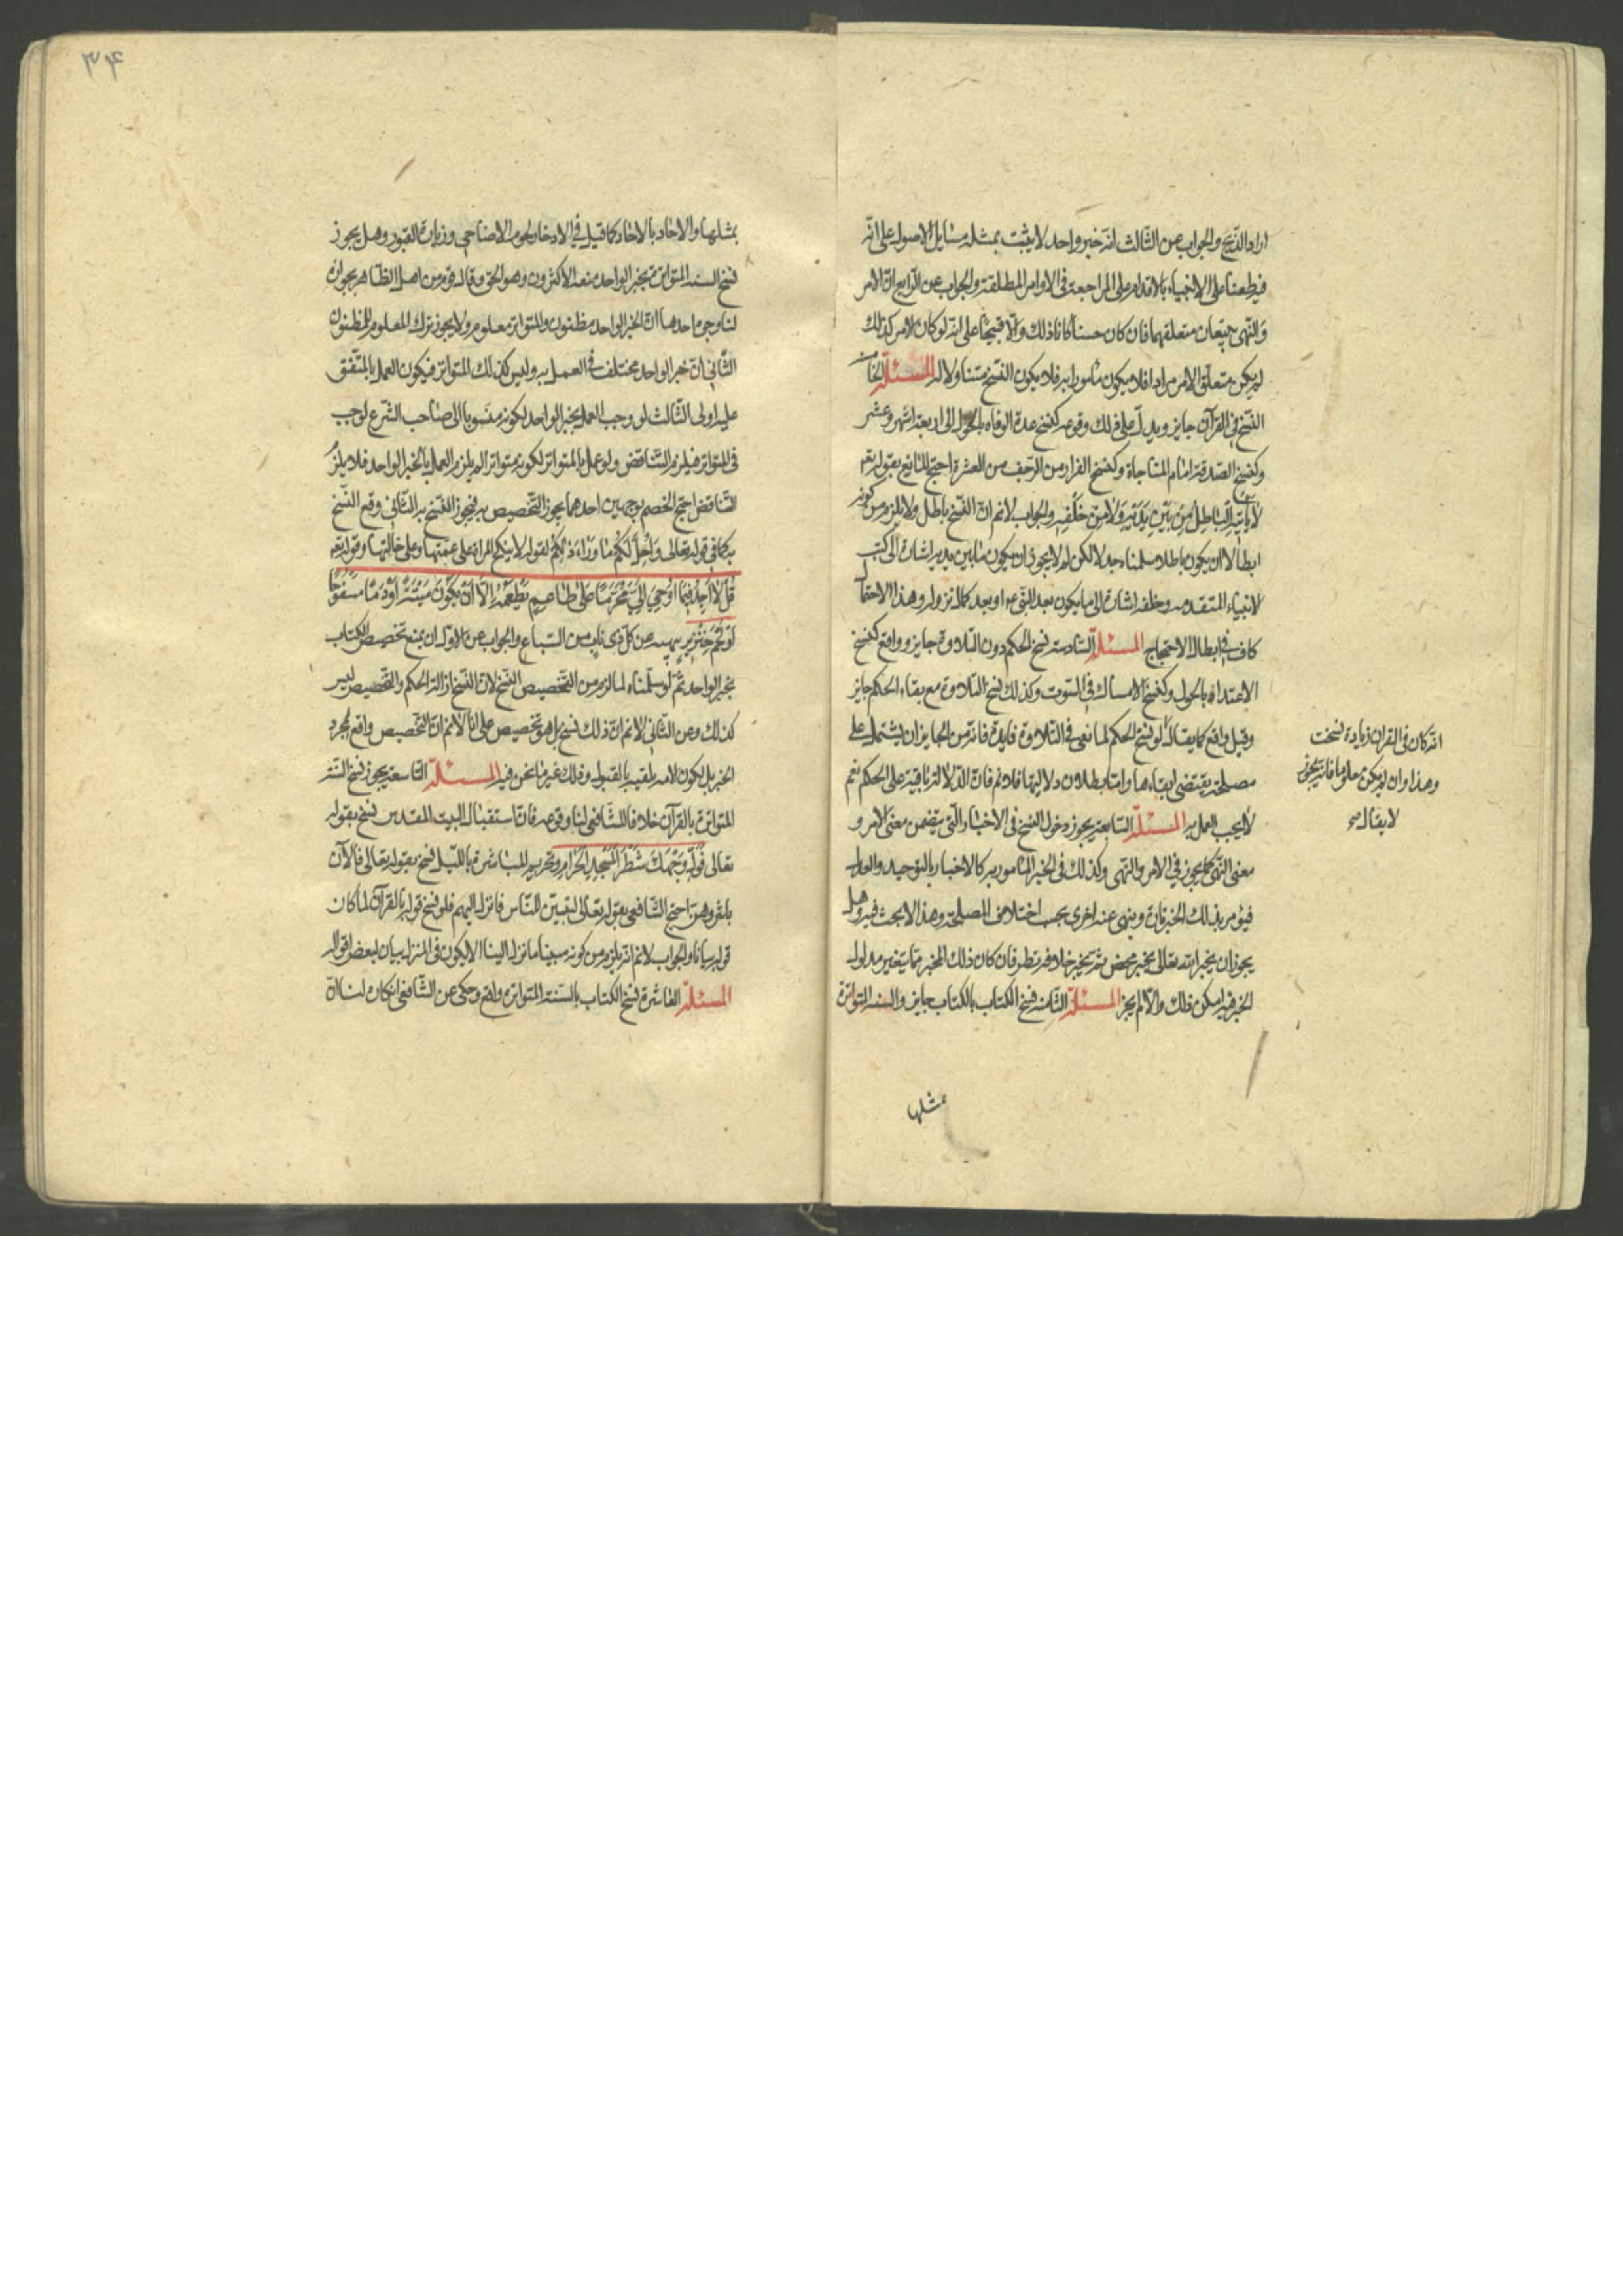 اراد الذبح والجواب عن الثالث انه خبر واحد لا يثبت بمثله مسايل الاصول على انه
فيه طعنا على الانبياء بالاقدام على المراجعة فى الاوامر المطلقة والجواب عن الرابع ان الامر
والنهى يتبعان متعلقهما فان كان حسنا كانا ذلك والا قبيحا على انه لو كان الامر كذلك
لم يكن متعلق الامر مرادا فلا يكون مامورا به فلا يكون النسخ متناولا له المسئلة الخامسة
النسخ فى القرآن جايز ويدل على ذلك وقوعه كنسخ عدة الوفاه بالحول الى اربعة اشهر وعشر
وكنسخ الصدقة امام المناجاة وكنسخ الفرار من الزحف من العشرة احتج المانع بقوله تعم
لا ياتيه الباطل من بين يديه ولا من خلفه والجواب لانم ان النسخ باطل ولا يلزم من كونه
ابطالا ان يكون باطلا سلمناه جدلا لكن لم لا يجوز ان يكون مابين يديه اشارة الى كتب
الانبياء المتقدمه وخلفه اشارة الى ما يكون بعد النبى ع او بعد كمال نزوله وهذا الاحتمال
كاف فى ابطال الاحتجاج المسئلة السادسة نسخ الحكم دون التلاوة جايز وواقع كنسخ
الاعتداد بالحول وكنسخ الامساك فى البيوت وكذلك نسخ التلاوة مع بقاء الحكم جايز
وقيل واقع كما يقال لو نسخ الحكم لما نعى فى التلاوة فايدة فانه من الجايز ان يشتمل على
مصلحة يقتضى ابقاءها واما بطلان دلاليتها فلا نم فان الدلالة باقية على الحكم نعم
لا يجب العمل به المسئلة السابعة يجوز دخول النسخ فى الاخبار التى يتضمن معنى الامر و
معنى النهى كما يجوز فى الامر والنهى وكذلك فى الخبر المامور به كالاخبار بالتوحيد والعدل
فيؤمر بذلك الخبر تارة وينهى عنه اخرى بحسب اختلاف المصلحة وهذا لا بحث فيه وهل
يجوز ان يخبر الله تعالى بخبر محض ثم يخبر خلافه نظر فان كان ذلك المخبر مما يتغير مدلول
الخبر فيه امكن ذلك والا لم يجز المسئلة الثامنة نسخ الكتاب بالكتاب جايز والسنه المتواترة
بمثلها
انه كان فى القران زيادة نسخت
وهذا وان لم يكن معلوما فانه يجوز
لا يقال
۳۴
بمثلها والاحاد بالاحاد كما قيل فى الادخار لحوم الاضاحى وزيارة القبور وهل يجوز
نسخ السنه المتواترة بخبر الواحد منعه الاكثرون وهو الحق وقال قوم من اهل الظاهر بجوازه
لنا وجوه احدها ان الخبر الواحد مظنون والمتواتر معلوم ولا يجوز ترك المعلوم للمظنون
الثانى ان خبر الواحد مختلف فى العمل به وليس كذلك المتواتر فيكون العمل بالمتفق
عليه اولى الثالث لو وجب العمل بخبر الواحد لكونه منسوبا الى صاحب الشرع لوجب
فى المتواتر فيلزم التناقض ولو عمل بالمتواتر لكونه متواترا لم يلزم العمل بالخبر الواحد فلا يلزم
التناقض احتج الخصم بوجهين احدهما يجوز التخصيص به فيجوز النسخ به الثانى وقع النسخ
به كما فى قوله تعالى واحل لكم ما وراء ذلكم لقوله لا ينكح المراة على عمتها وعلى خالتها وقوله تعم
قل لا اجد فيما اوحى الى محرما على طاعم يطعمه الا ان يكون ميتة او دما مسفوحا
او لحم خنزير بنهيه عن كل ذى ناب من السباع والجواب عن الاول ان يمنع تخصيص الكتاب
بخبر الواحد ثم لو سلمناه لما لزم من التخصيص النسخ لان النسخ ازالة الحكم والتخصيص ليس
كذلك وعن الثانى لانم ان ذلك نسخ بل هو تخصيص على انا لانم ان التخصيص واقع بمجرد
الخبر بل يكون لامة تلقيه بالقبول وذلك غير ما نحن فيه المسئلة التاسعة يجوز نسخ السنة
المتواترة بالقرآن خلافا للشافعى لنا وقوعه فان استقبال البيت المقدس نسخ بقوله
تعالى فول وجهك شطر المسجد الحرام وتحريم المباشرة بالليل نسخ بقوله تعالى فالآن
باشروهن احتج الشافعى بقوله تعالى لتبين للناس ما نزل اليهم فلو نسخ قوله بالقرآن لما كان
قوله بيانا والجواب لانم انه يلزم من كونه مبينا ما نزل الينا الا يكون فى المنزل بيان لبعض اقواله
المسئلة العاشرة نسخ الكتاب بالسنة المتواترة واقع وحكى عن الشافعى انكاره لنا ان